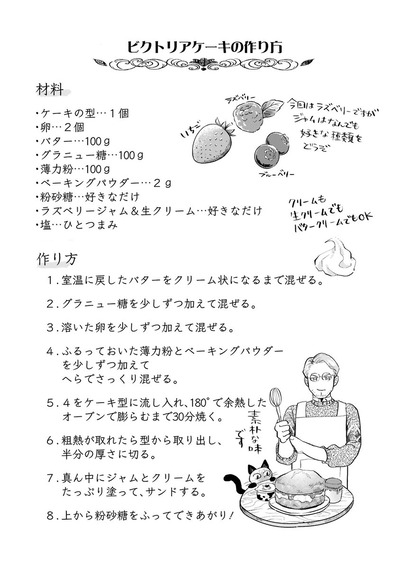 ビクトリアケーキの作り方
材料
・ケーキの型…１個
・卵…２個
・バター…100ｇ
・グラニュー糖…100ｇ
・薄力粉…100ｇ
・ベーキングパウダー…２ｇ
・粉砂糖…好きなだけ
・ラズベリージャム＆生クリーム…好きなだけ
・塩…ひとつまみ
ラズベリー
いちご
ブルーベリー
今回はラズベリーですが
ジャムはなんでも
好きな種類を
どうぞ
クリームも
生クリームでも
バタークリームでもOK
作り方
１．室温に戻したバターをクリーム状になるまで混ぜる。
２．グラニュー糖を少しずつ加えて混ぜる。
３．溶いた卵を少しずつ加えて混ぜる。
４．ふるっておいた薄力粉とベーキングパウダー
を少しずつ加えて
へらでさっくり混ぜる。
５．４をケーキ型に流し入れ、180°で余熱した
オーブンで膨らむまで30分焼く。
６．粗熱が取れたら型から取り出し、
半分の厚さに切る。
７．真ん中にジャムとクリームを
たっぷり塗って、サンドする。
８．上から粉砂糖をふってできあがり！
素朴な味
です